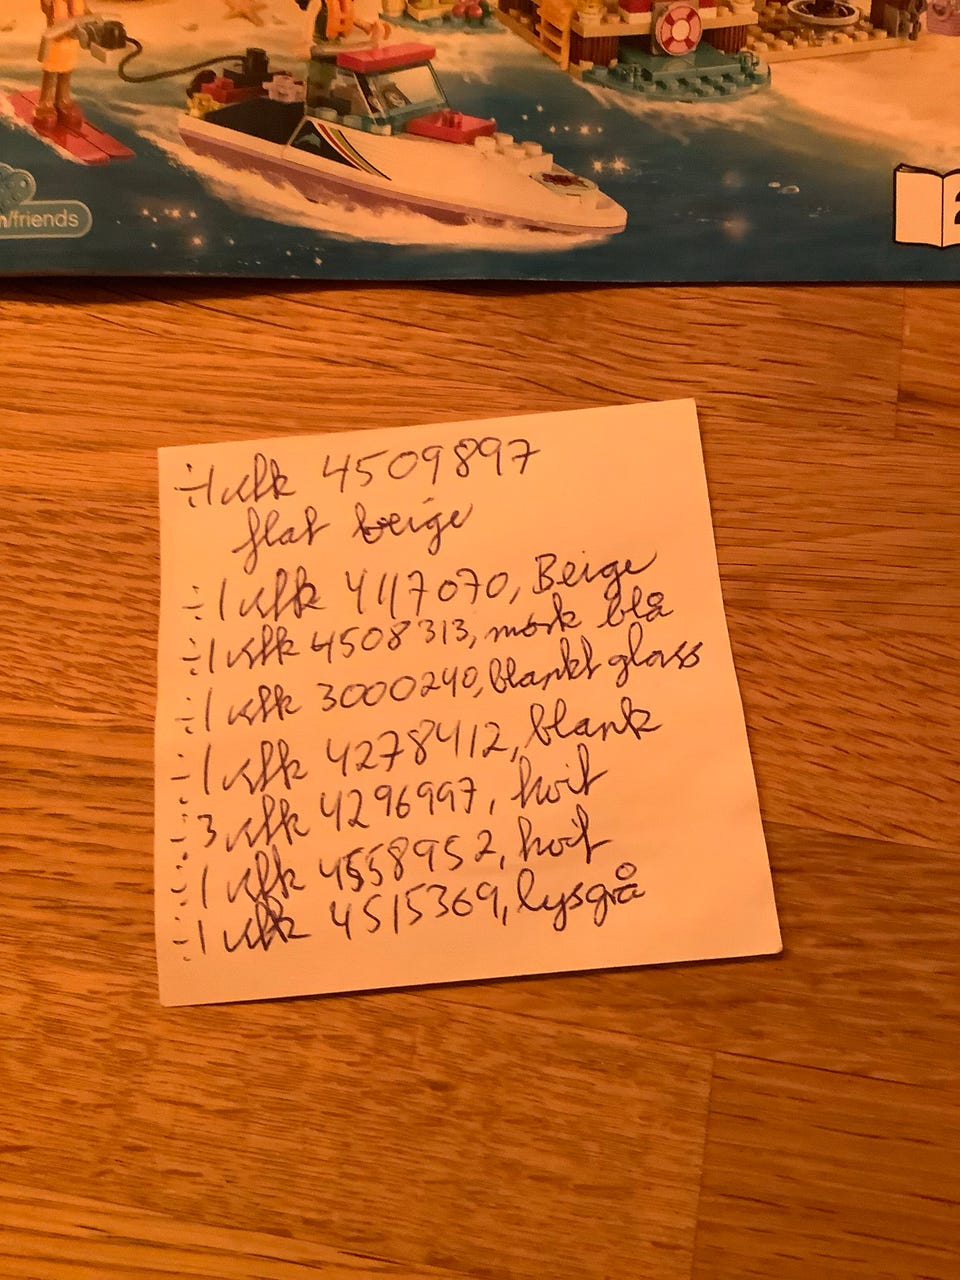 /friends
2
÷1 stk 4509897
flat beige
÷1 stk 4117070, Beige
÷1 stk 4508313, mørk blå
÷1 stk 3000240, blankt glass
÷1 stk 4278412, blank
÷3 stk 4296997, hvit
÷1 stk 4558952, hvit
÷1 stk 4515369, lysgrå